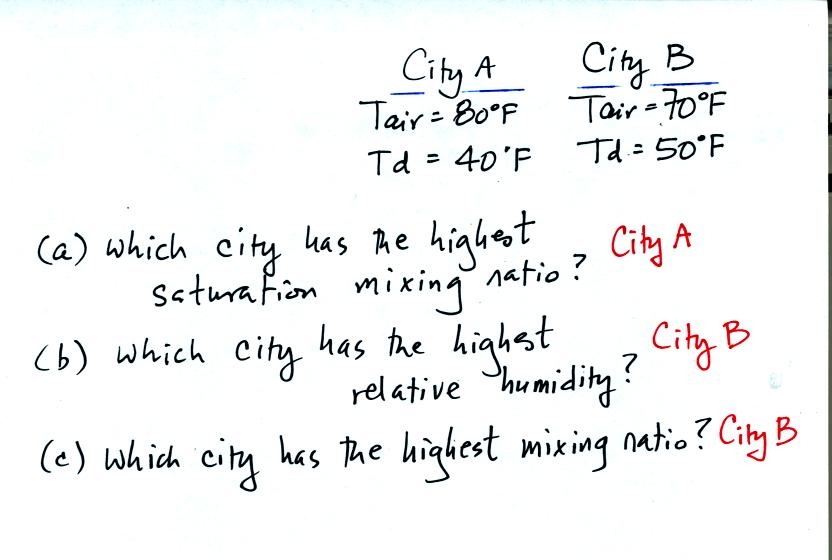 City A City B
Tair = 80°F Tair = 70°F
Td = 40°F Td = 50°F
(a) which city has the highest City A
saturation mixing ratio?
(b) which city has the highest City B
relative humidity?
(c) which city has the highest mixing ratio? City B